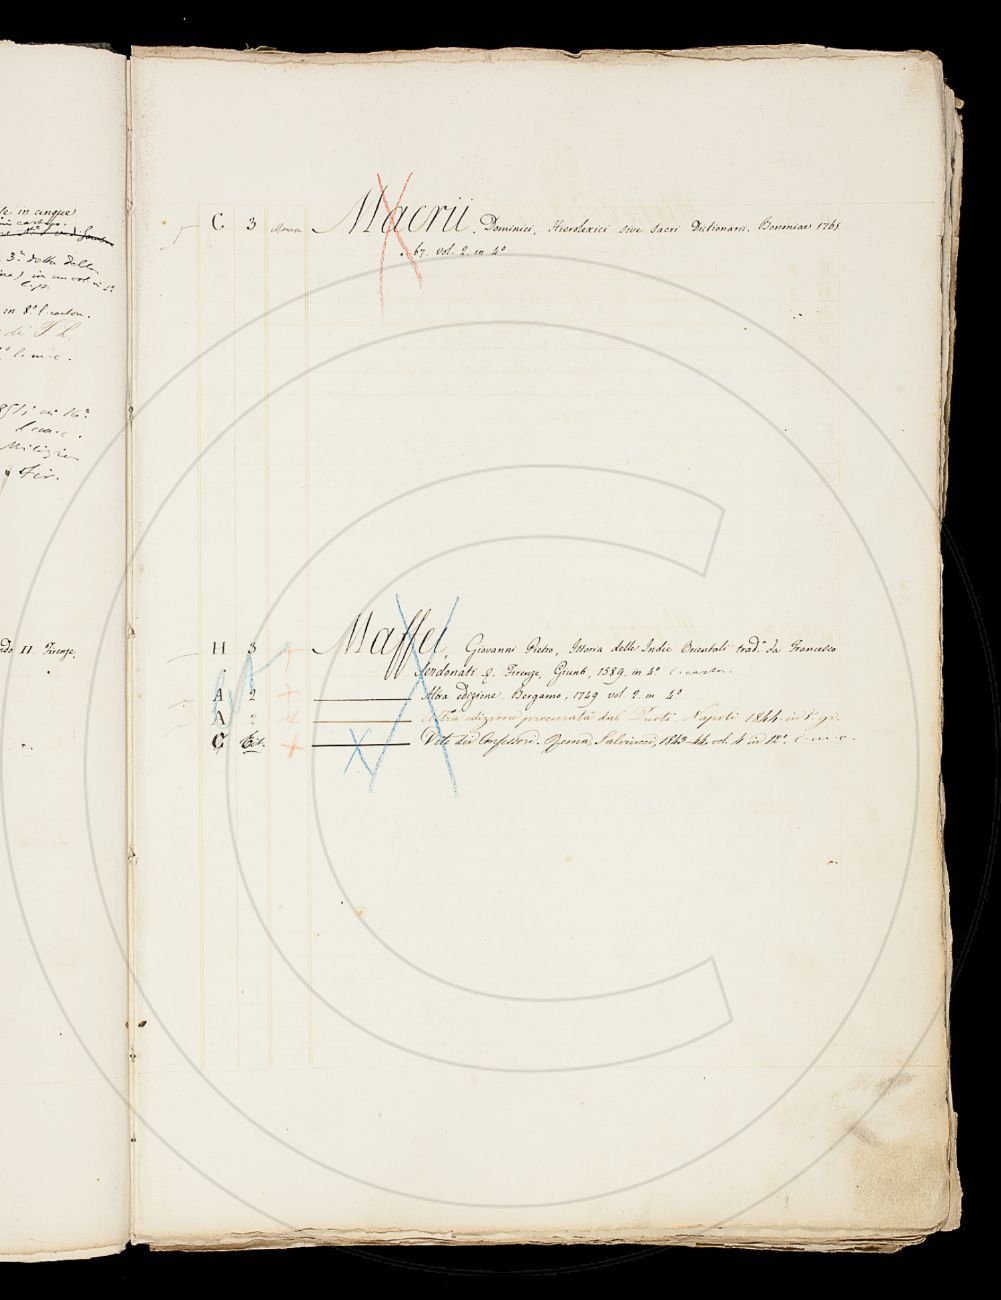 le in cinque
3.a della della
in 8.o l. carton.
di F. L.
l. m. c.
in 16.o
l. m. c.
Milizia
Fir.
C 3 Manca Macrii, Dominici, Hierolexici sive sacri Dictionarii. Bononiae 1765
67. vol. 2. in 4.o
II. Firenze,
H 3 Maffei, Giovanni Pietro, Istoria delle Indie Orientali trad.a da Francesco
Serdonati. Firenze, Giunti, 1589. in 4.o l. carton.
A 2 Altra edizione. Bergamo, 1749 vol. 2. in 4.o
A 2 Altra edizione procurata dal Puoti. Napoli 1844. in 8.o gr.
C Vite dei Confessori. Roma, Salviucci, 1843-44. vol. 4 in 12.o l. m. c.